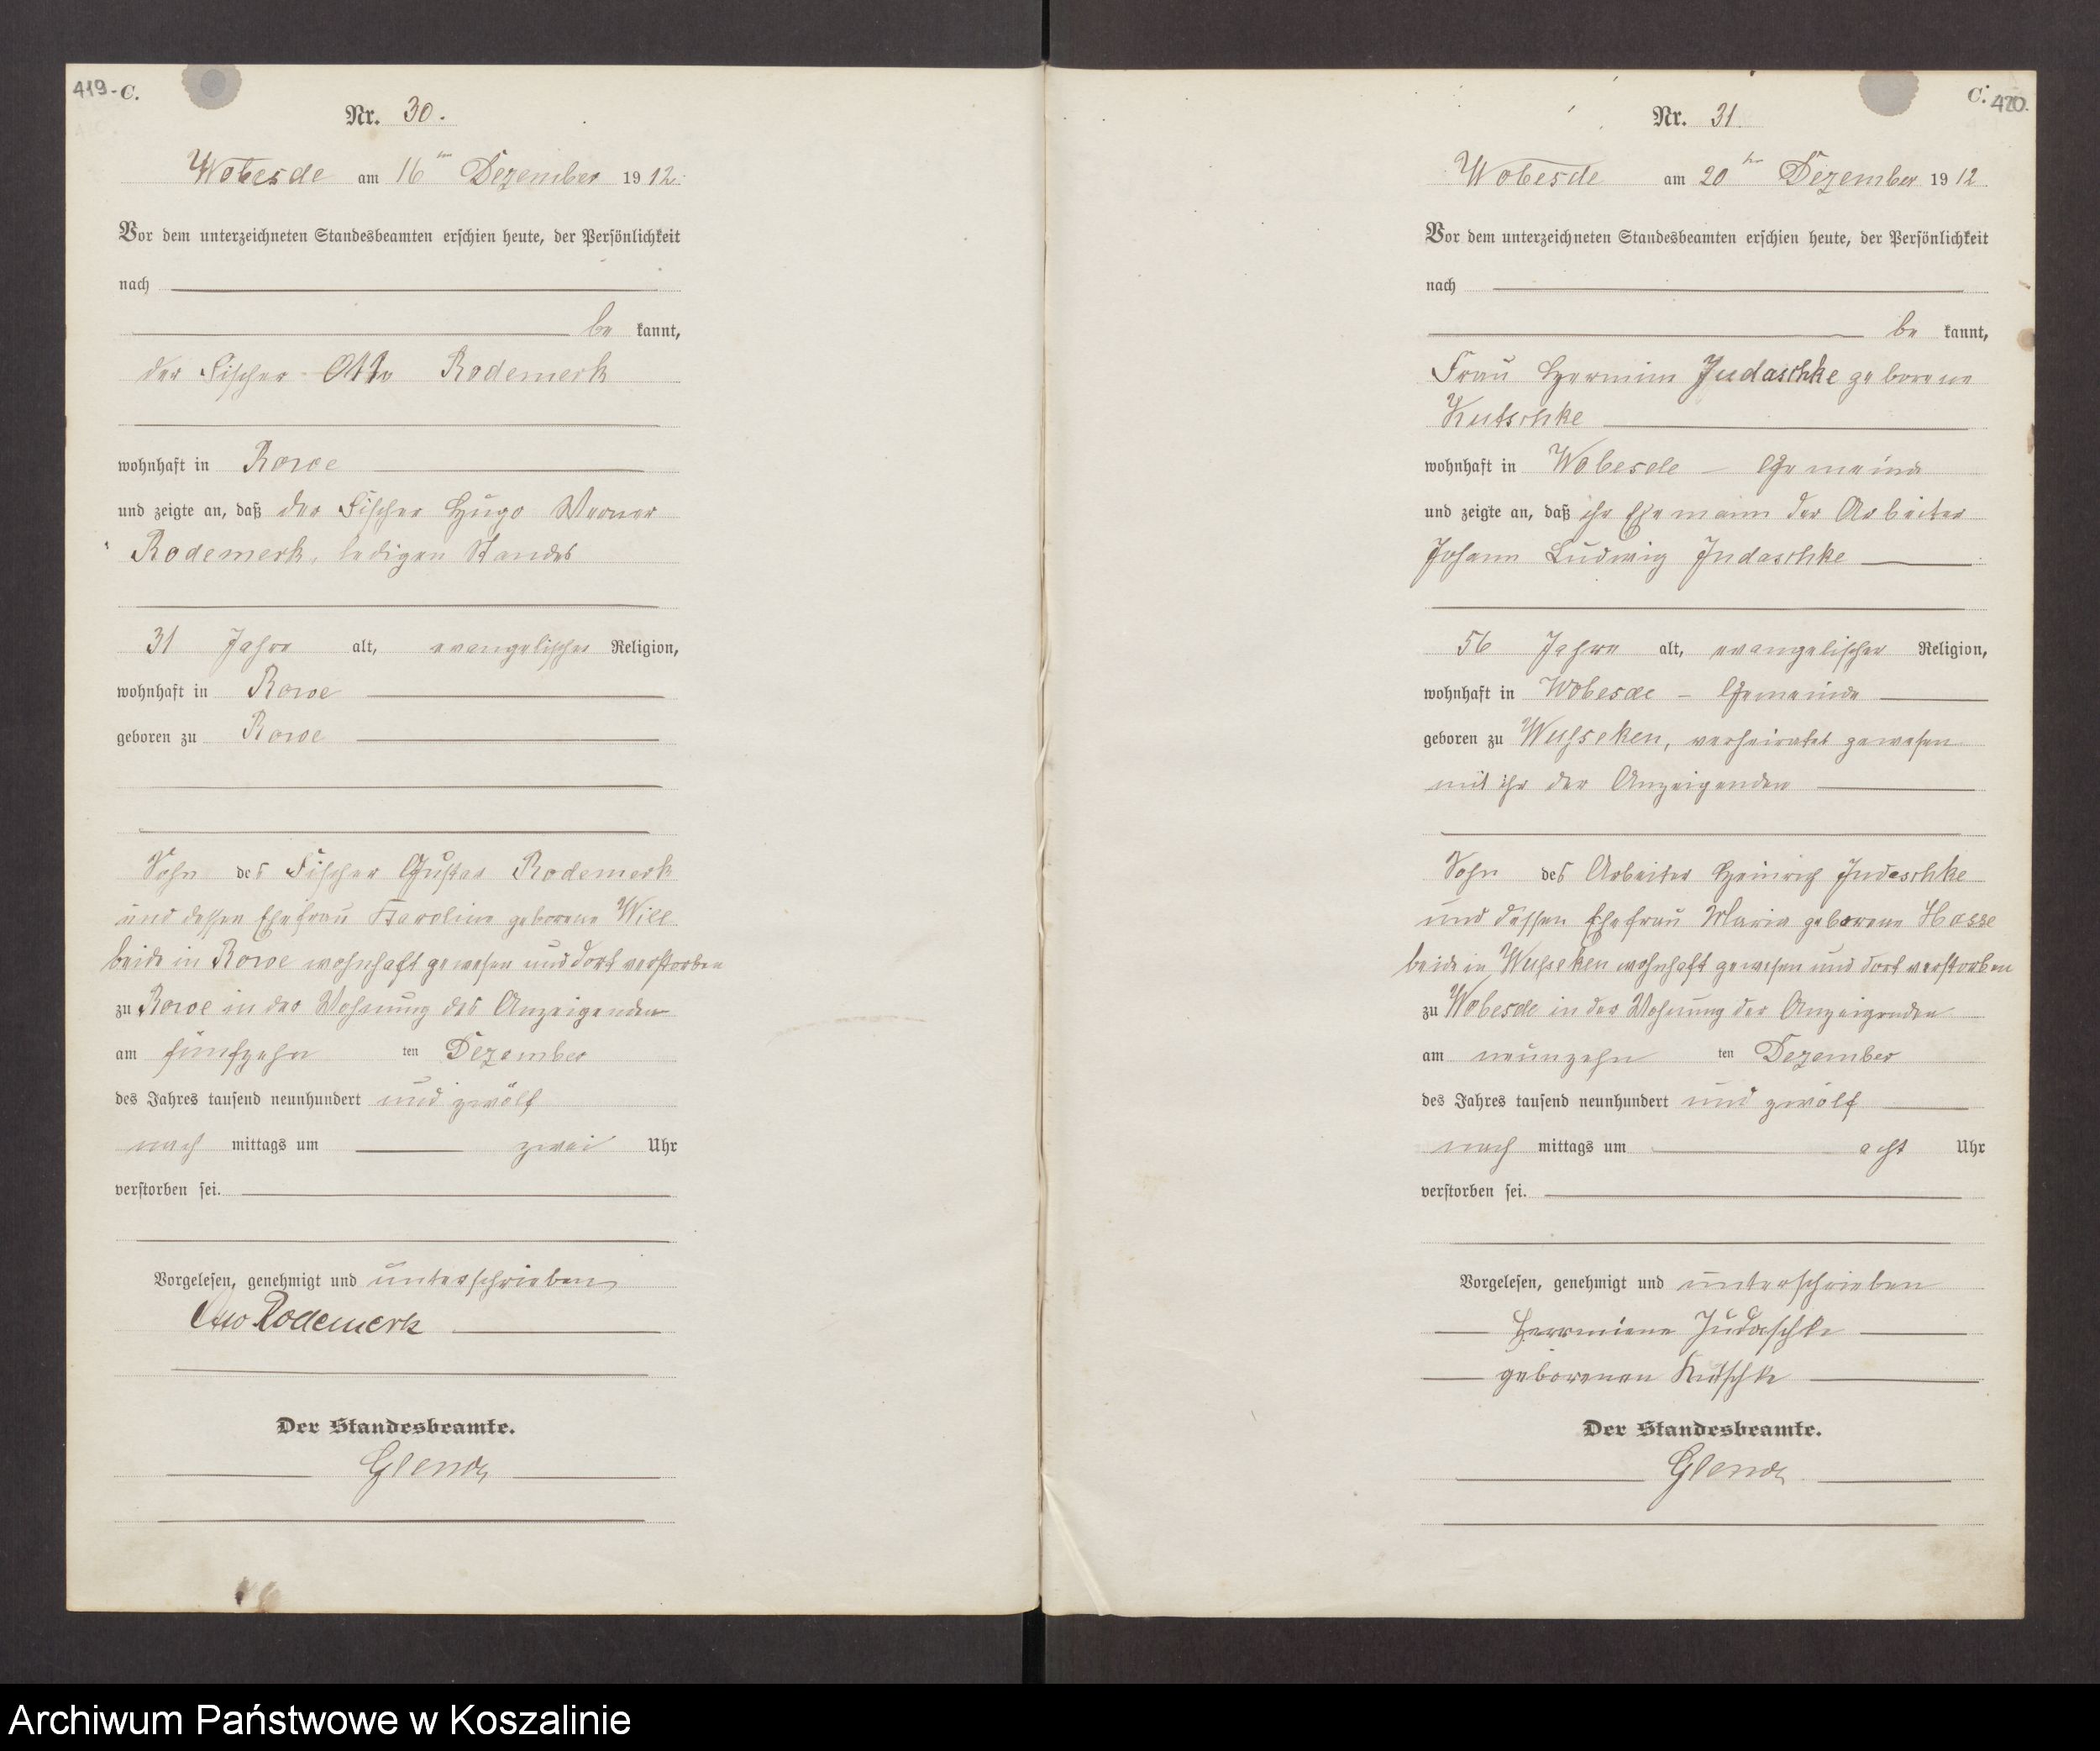 419-C.
Nr. 30.
Wobesde am 16ten Dezember 1912.
Vor dem unterzeichneten Standesbeamten erschien heute, der Persönlichkeit
nach
be kannt,
der Fischer Otto Rodemerk
wohnhaft in Rowe
und zeigte an, daß der Fischer Hugo Werner
Rodemerk, ledigen Standes
31 Jahre alt, evangelischer Religion,
wohnhaft in Rowe
geboren zu Rowe
Sohn des Fischer Gustav Rodemerk
und dessen Ehefrau Karoline geborene Will
beide in Rowe wohnhaft gewesen und dort verstorben
zu Rowe in der Wohnung des Anzeigenden
am fünfzehn ten Dezember
des Jahres tausend neunhundert und zwölf
nach mittags um zwei Uhr
verstorben sei.
Vorgelesen, genehmigt und unterschrieben
Otto Rodemerk
Der Standesbeamte.
C. 420.
Nr. 31.
Wobesde am 20ten Dezember 1912
Vor dem unterzeichneten Standesbeamten erschien heute, der Persönlichkeit
nach
be kannt,
Frau Hermine Judaschke geborene
Kutschke
wohnhaft in Wobesde - Gemeinde
und zeigte an, daß ihr Ehemann der Arbeiter
Johann Ludwig Judaschke
56 Jahre alt, evangelischer Religion,
wohnhaft in Wobesde - Gemeinde
geboren zu Wusseken, verheiratet gewesen
mit ihr der Anzeigenden
Sohn des Arbeiter Heinrich Judaschke
und dessen Ehefrau Maria geborene Hasse
beide in Wusseken wohnhaft gewesen und dort verstorben
zu Wobesde in der Wohnung der Anzeigenden
am neunzehn ten Dezember
des Jahres tausend neunhundert und zwölf
nach mittags um acht Uhr
verstorben sei.
Vorgelesen, genehmigt und unterschrieben
Herrmiene Judaschke
geborenen Kutschke
Der Standesbeamte.
Archiwum Państwowe w Koszalinie